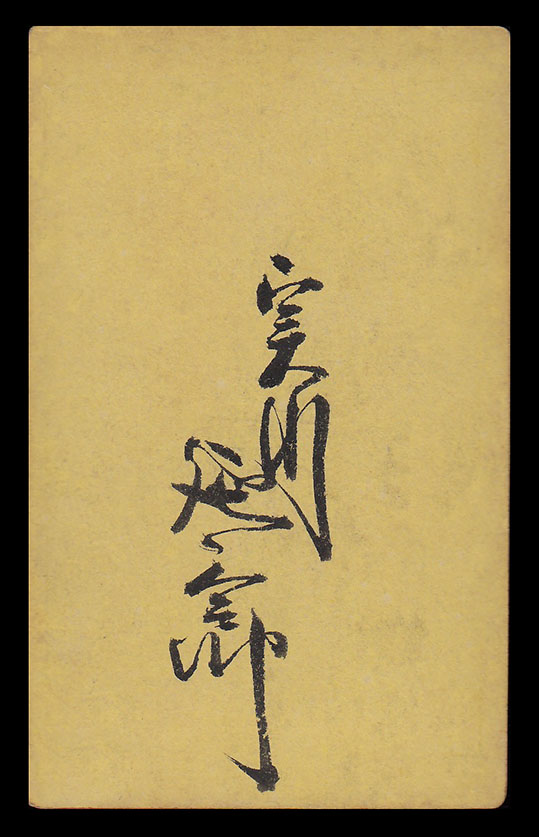 実川
延二郎